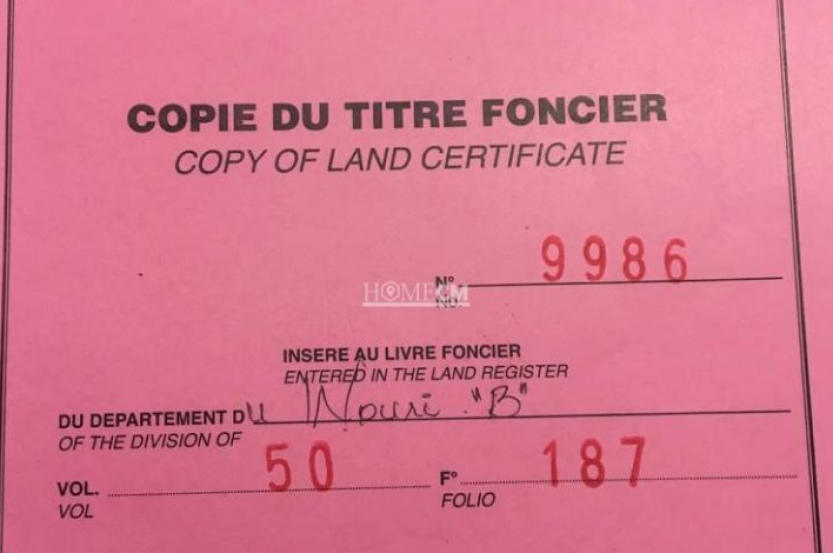 COPIE DU TITRE FONCIER
COPY OF LAND CERTIFICATE
N° 9986
No.
HOME CM
INSERE AU LIVRE FONCIER
ENTERED IN THE LAND REGISTER
DU DEPARTEMENT Du Wouri "B"
OF THE DIVISION OF
VOL. 50 F° 187
VOL FOLIO